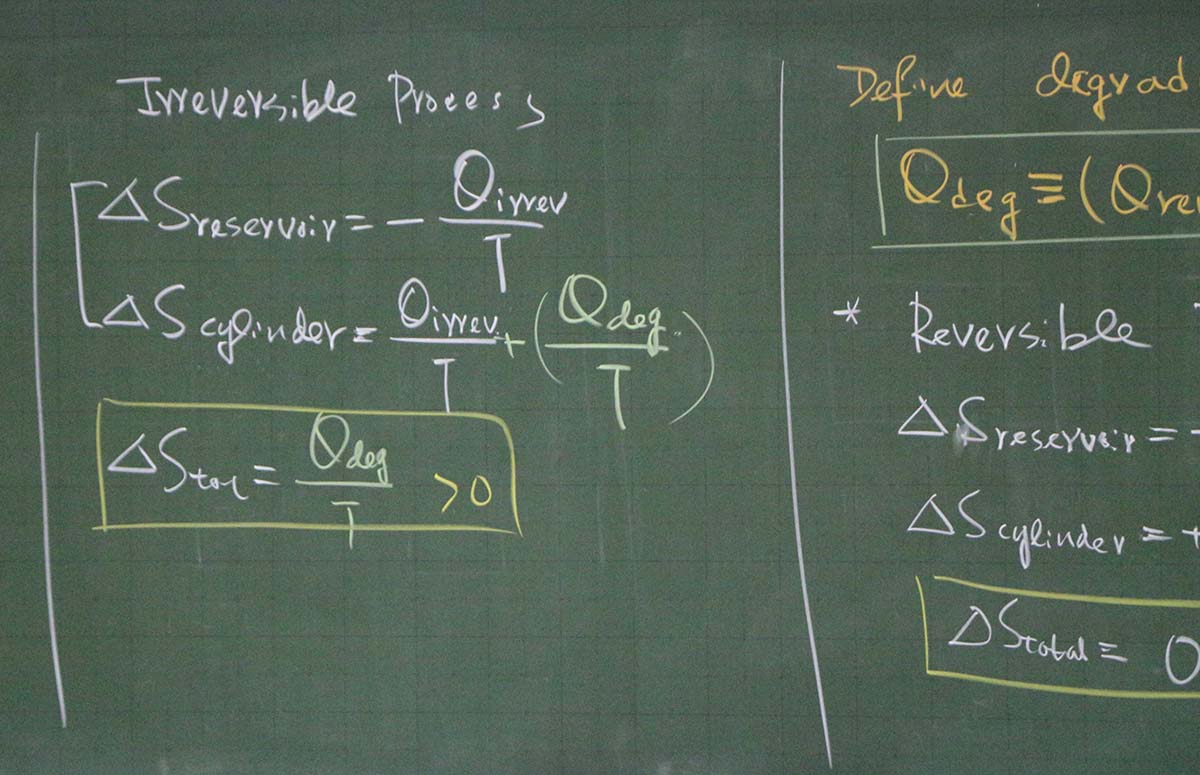 Irreversible Process
ΔS reservoir = - Q irrev / T
ΔS cylinder = Q irrev / T + ( Q deg / T )
ΔS tot = Q deg / T > 0
Define degrad
Q deg ≡ ( Q rev
* Reversible
ΔS reservoir = -
ΔS cylinder = +
ΔS total = 0